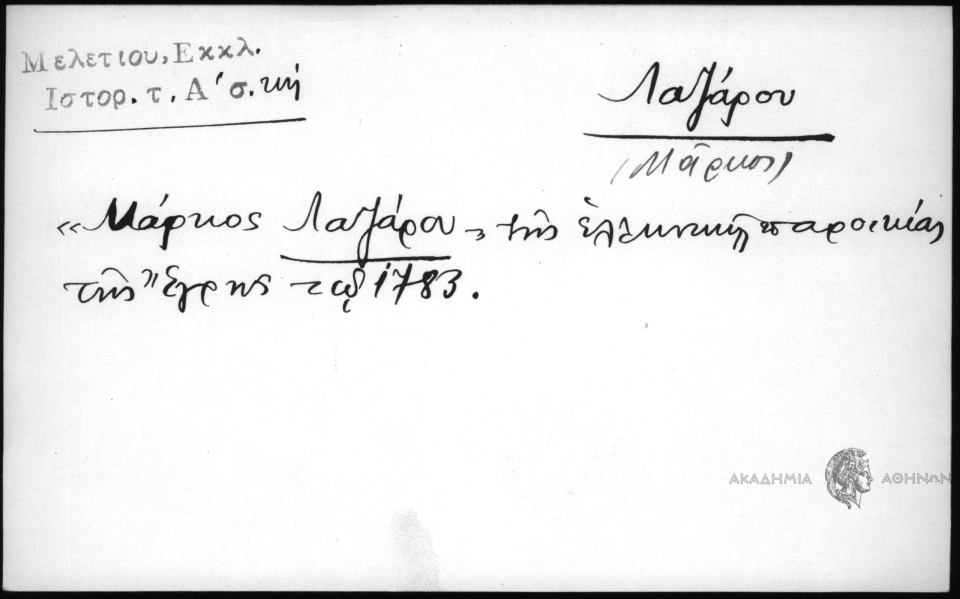 Μελετίου, Εκκλ.
Ιστορ. τ. Α΄ σ. κή
Λαζάρου
(Μᾶρκος)
«Μάρκος Λαζάρου», τῆς ἑλληνικῆς παροικίας
τῆς Ἔγρης τῷ 1783.
ΑΚΑΔΗΜΙΑ ΑΘΗΝΩΝ